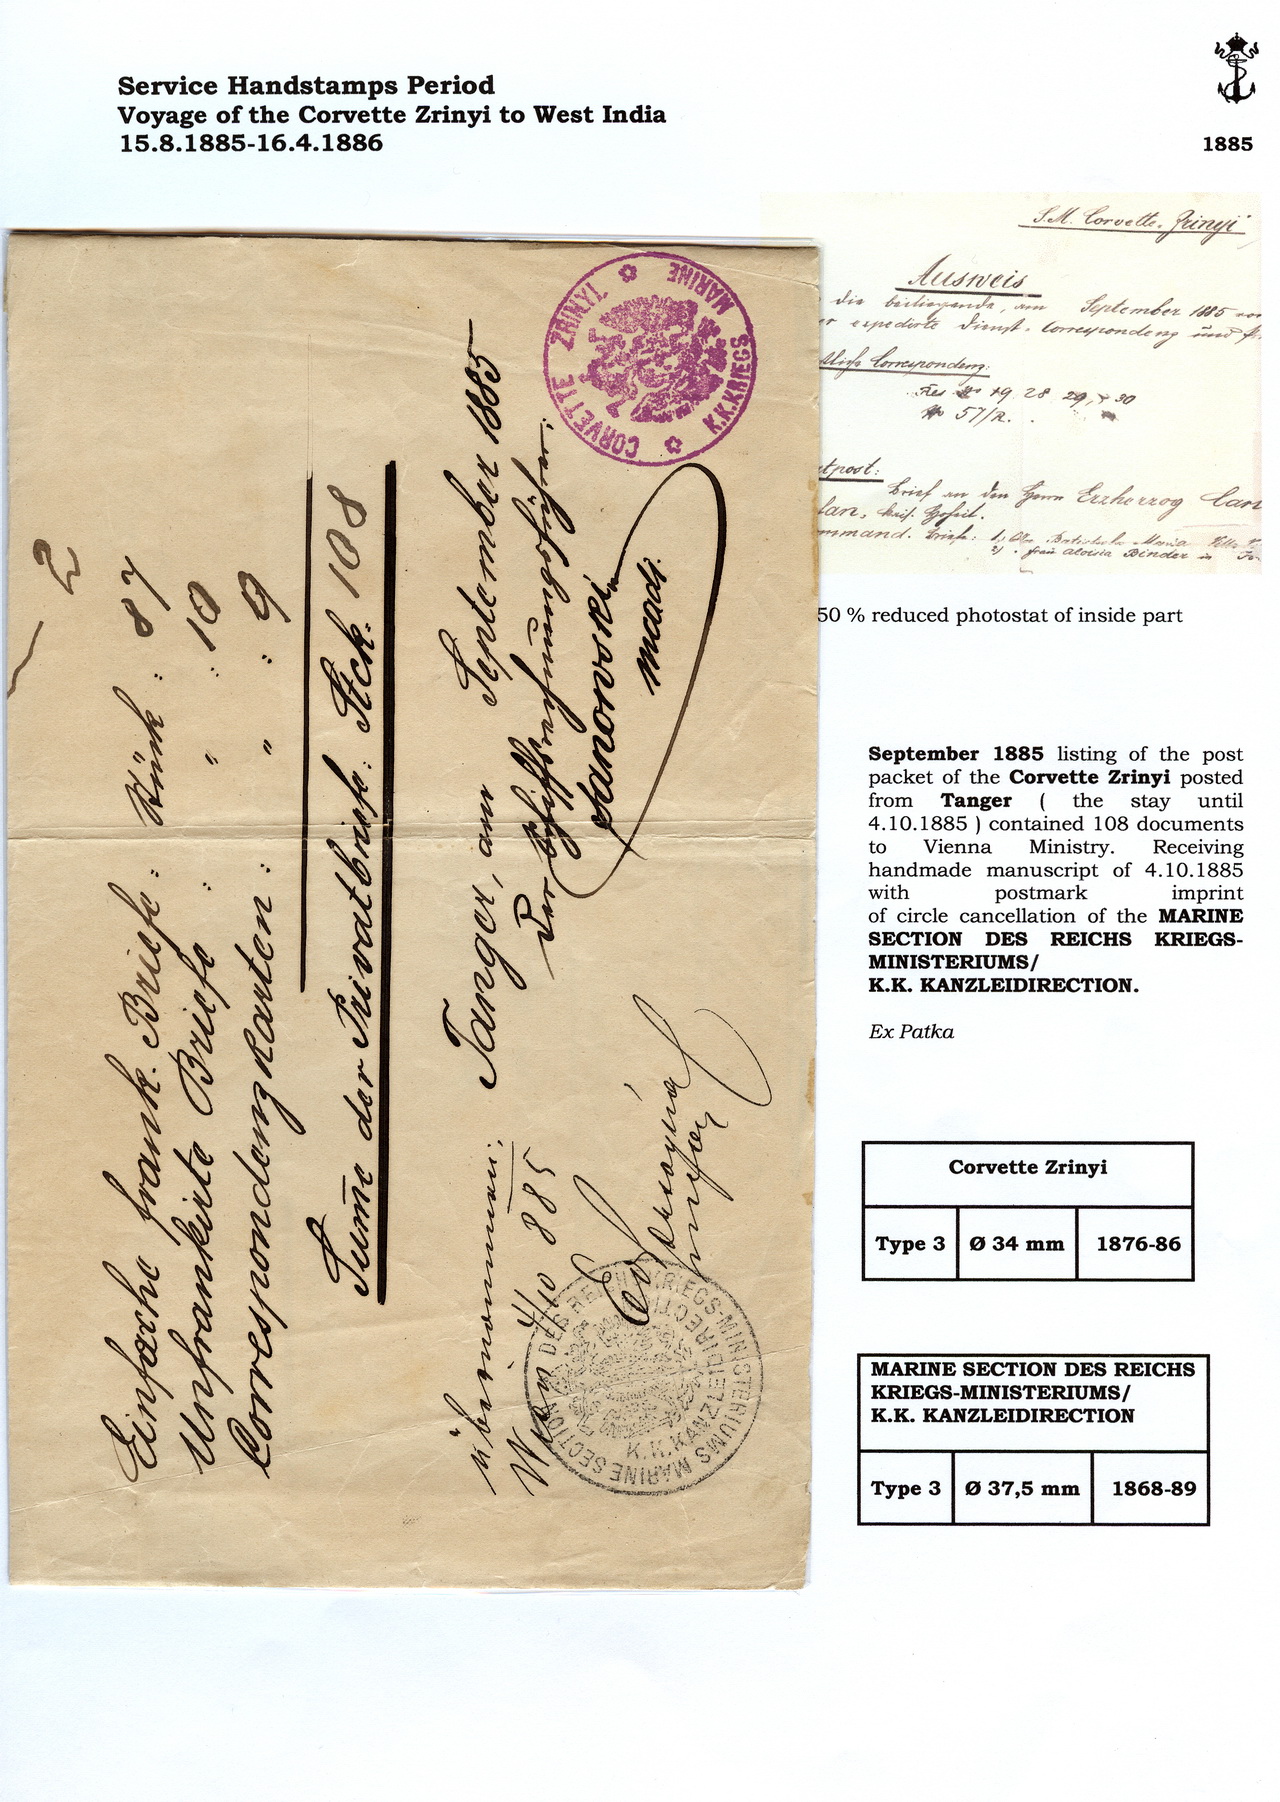 Service Handstamps Period
Voyage of the Corvette Zrinyi to West India
15.8.1885-16.4.1886
1885
S.M. Corvette "Zrinyi"
Ausweis
die beiliegende, am September 1885 von
er expedirte Dienst-Correspondenz und
Correspondenz:
Res No 19, 28, 29, + 30
No 57/R.
tpost:
Brief an den Herrn Erzherzog Carl
2) Frau Aloisia Binder in
50 % reduced photostat of inside part
2
Einfache frank. Briefe: Stück: 87
Unfrankirte Briefe : " : 10
Correspondenzkarten: " : 9
Sum̄e der Privatbriefe: Stck. 108
Tanger, am September 1885
Der Schiffsrechnungsführer:
übernommen:
Wien 4/10 885
CORVETTE ZRINYI.
K.K.KRIEGS MARINE
MARINE SECTION DES REICHS KRIEGS-MINISTERIUMS
K.K.KANZLEIDIRECTION
September 1885 listing of the post
packet of the Corvette Zrinyi posted
from Tanger ( the stay until
4.10.1885 ) contained 108 documents
to Vienna Ministry. Receiving
handmade manuscript of 4.10.1885
with postmark imprint
of circle cancellation of the MARINE
SECTION DES REICHS KRIEGS-
MINISTERIUMS/
K.K. KANZLEIDIRECTION.
Ex Patka
Corvette Zrinyi
Type 3 Ø 34 mm 1876-86
MARINE SECTION DES REICHS
KRIEGS-MINISTERIUMS/
K.K. KANZLEIDIRECTION
Type 3 Ø 37,5 mm 1868-89